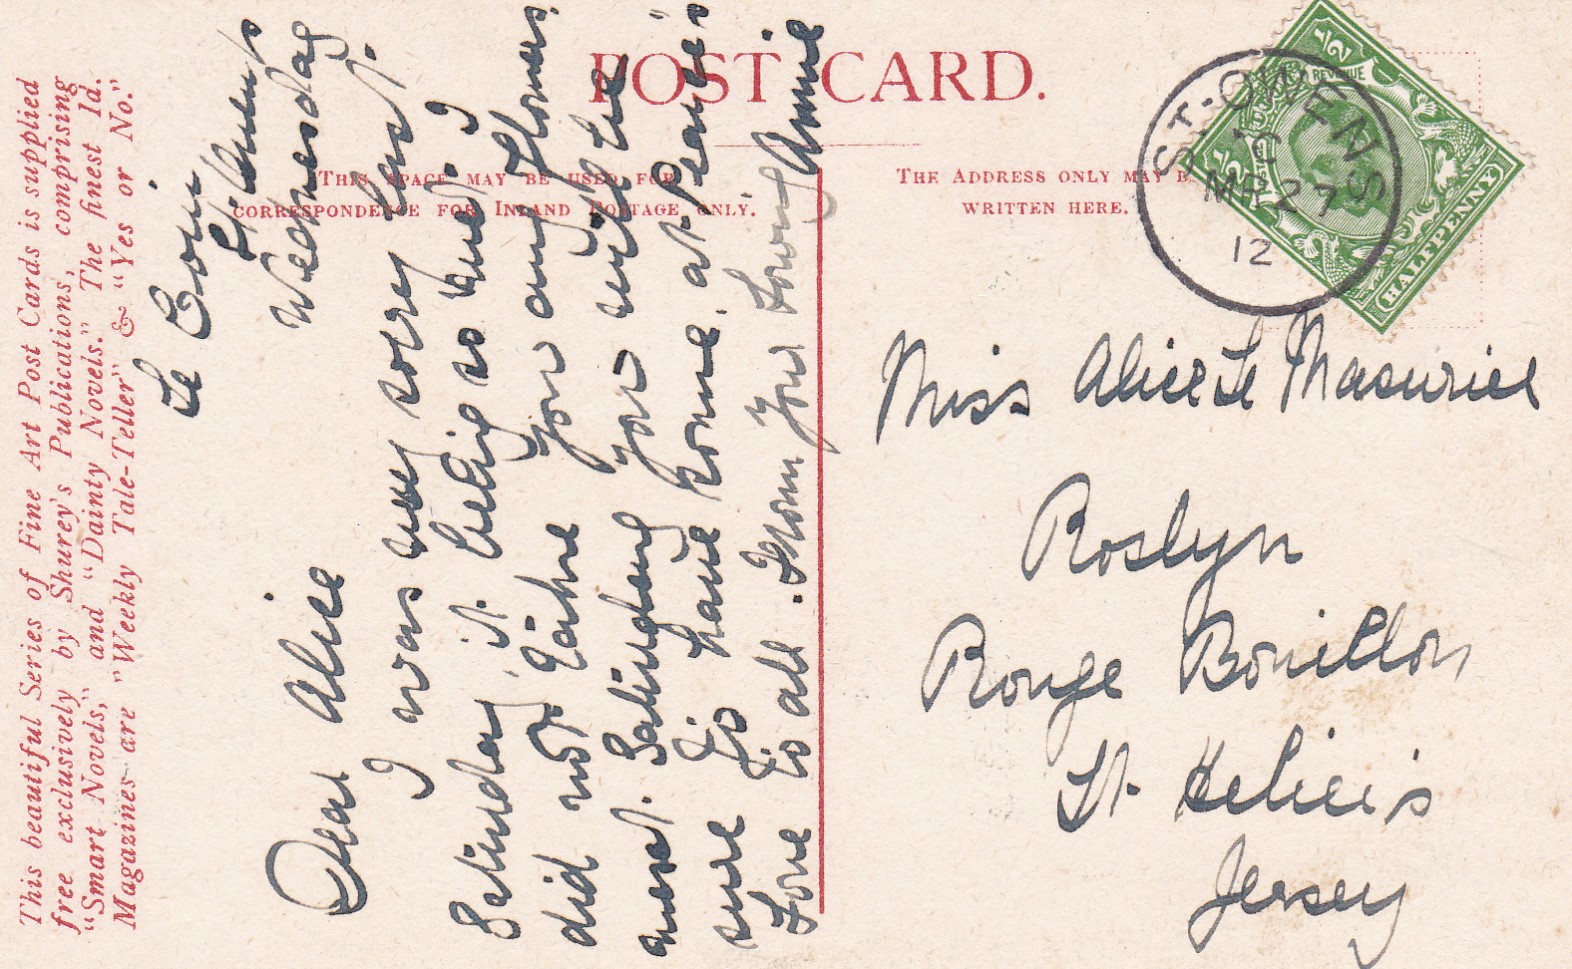 POST CARD.
THIS SPACE MAY BE USED FOR
CORRESPONDENCE FOR INLAND POSTAGE ONLY.
THE ADDRESS ONLY MAY B
WRITTEN HERE.
This beautiful Series of Fine Art Post Cards is supplied
free exclusively by Shurey's Publications, comprising
"Smart Novels," and "Dainty Novels." The finest 1d.
Magazines are "Weekly Tale-Teller" & "Yes or No."
Le Coin
St. Ouen's
Wednesday
Dear Alice
I was very sorry last.
Saturday, it being so wet. I
did not take you any flowers.
next. Saturday you will be
sure to have some, at Pearce's"
Love to all. From your loving Annie
Miss Alice Le Masurier
Roslyn
Rouge Bouillon
St. Helier's
Jersey
ST. OWENS
MR 27
12
1/2
REVENUE
1/2
HALFPENNY